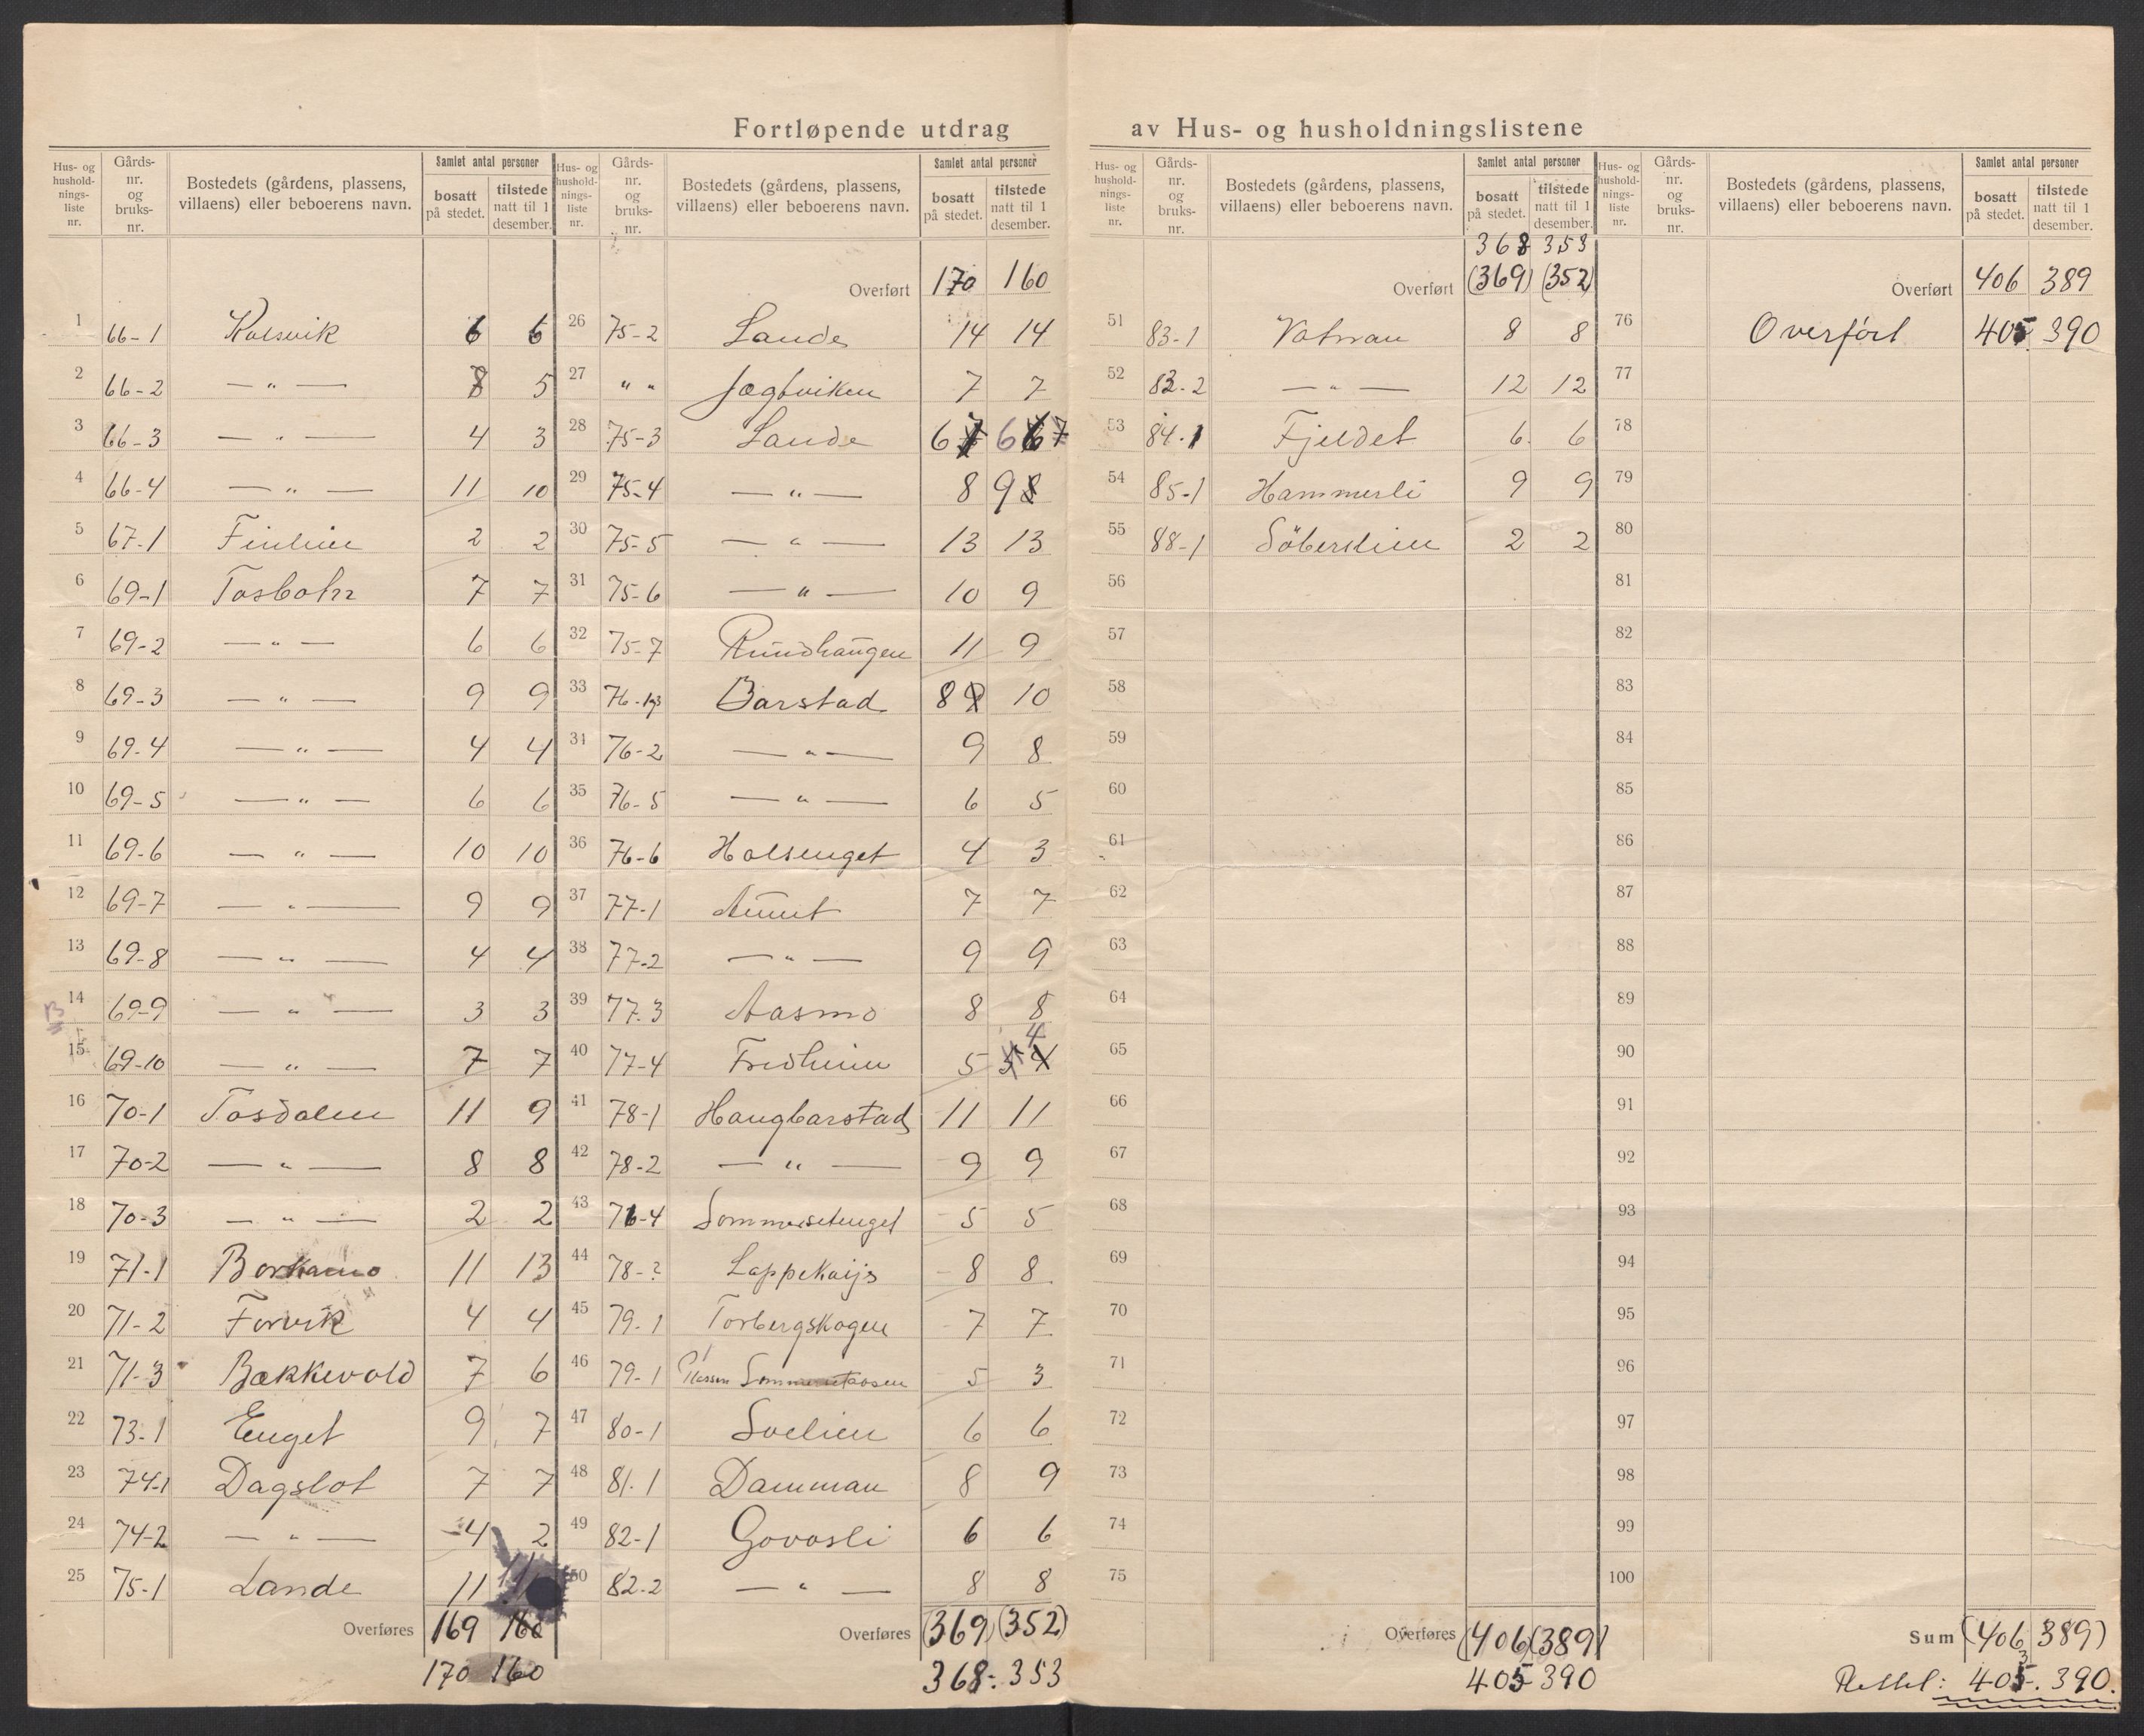 Fortløpende utdrag av Hus- og husholdningslistene
Hus- og hushold-nings-liste nr. | Gårds-nr. og bruks-nr. | Bostedets (gårdens, plassens, villaens) eller beboerens navn. | Samlet antal personer | bosatt på stedet. | tilstede natt til 1 desember.
1 66-1 Kolsvik 6 6
2 66-2 — " — 8 5
3 66-3 — " — 4 3
4 66-4 — " — 11 10
5 67-1 2 2
6 69-1 Tosbotn 7 7
7 69-2 — " — 6 6
8 69-3 — " — 9 9
9 69-4 — " — 4 4
10 69-5 — " — 6 6
11 69-6 — " — 10 10
12 69-7 — " — 9 9
13 69-8 — " — 4 4
14 69-9 — " — 3 3
15 69-10 — " — 7 7
16 70-1 Tosdalen 11 9
17 70-2 — " — 8 8
18 70-3 — " — 2 2
19 71-1 Borkamo 11 13
20 71-2 Forvik 4 4
21 71-3 Bækkevold 7 6
22 73-1 Enget 9 7
23 74-1 Dagslot 7 7
24 74-2 — " — 4 2
25 75-1 Lande 11
Overføres 169 160
170 160
Hus- og hushold-nings-liste nr. | Gårds-nr. og bruks-nr. | Bostedets (gårdens, plassens, villaens) eller beboerens navn. | Samlet antal personer | bosatt på stedet. | tilstede natt til 1 desember.
Overført 170 160
26 75-2 Lande 14 14
27 " " Jægtviken 7 7
28 75-3 Lande 6 7 6 6 7
29 75-4 — " — 8 9 8
30 75-5 — " — 13 13
31 75-6 — " — 10 9
32 75-7 Rundhaugen 11 9
33 Barstad 8 9 10
34 76-2 — " — 9 8
35 76-5 — " — 6 5
36 76-6 Holsenget 4 3
37 77-1 Aunet 7 7
38 77-2 — " — 9 9
39 77.3 Aasmo 8 8
4
40 77-4 Fredheim 5 5 4
41 78-1 Haugbarstad 11 11
42 78-2 — " — 9 9
43 76-4 Sommersetenget 5 5
44 78-? 8 8
45 79.1 Torbergskogen 7 7
46 79-1 Plassen 5 3
47 80-1 Svelien 6 6
48 81.1 Damman 8 9
49 82-1 Govasli 6 6
50 82-2 — " — 8 8
Overføres (369) (352)
368. 353
Hus- og hushold-nings-liste nr. | Gårds-nr. og bruks-nr. | Bostedets (gårdens, plassens, villaens) eller beboerens navn. | Samlet antal personer | bosatt på stedet. | tilstede natt til 1 desember.
368 353
Overført (369) (352)
51 83-1 Vatnan 8 8
52 83-2 — " — 12 12
53 84-1 Fjeldet 6 6
54 85-1 Hammerli 9 9
55 88-1 2 2
56
57
58
59
60
61
62
63
64
65
66
67
68
69
70
71
72
73
74
75
Overføres (406) (389)
405 390
Hus- og hushold-nings-liste nr. | Gårds-nr. og bruks-nr. | Bostedets (gårdens, plassens, villaens) eller beboerens navn. | Samlet antal personer | bosatt på stedet. | tilstede natt til 1 desember.
Overført 406 389
76 Overført 405 390
77
78
79
80
81
82
83
84
85
86
87
88
89
90
91
92
93
94
95
96
97
98
99
100
Sum (406 389)
3
Rettet: 405. 390.